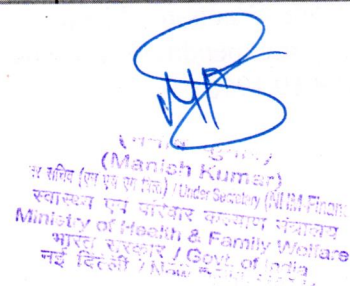 (Manish Kumar)
अवर सचिव / Under Secretary (NHM-Finance
स्वास्थ्य एवं परिवार कल्याण मंत्रालय
Ministry of Health & Family Welfare
भारत सरकार / Govt. of India
नई दिल्ली / New